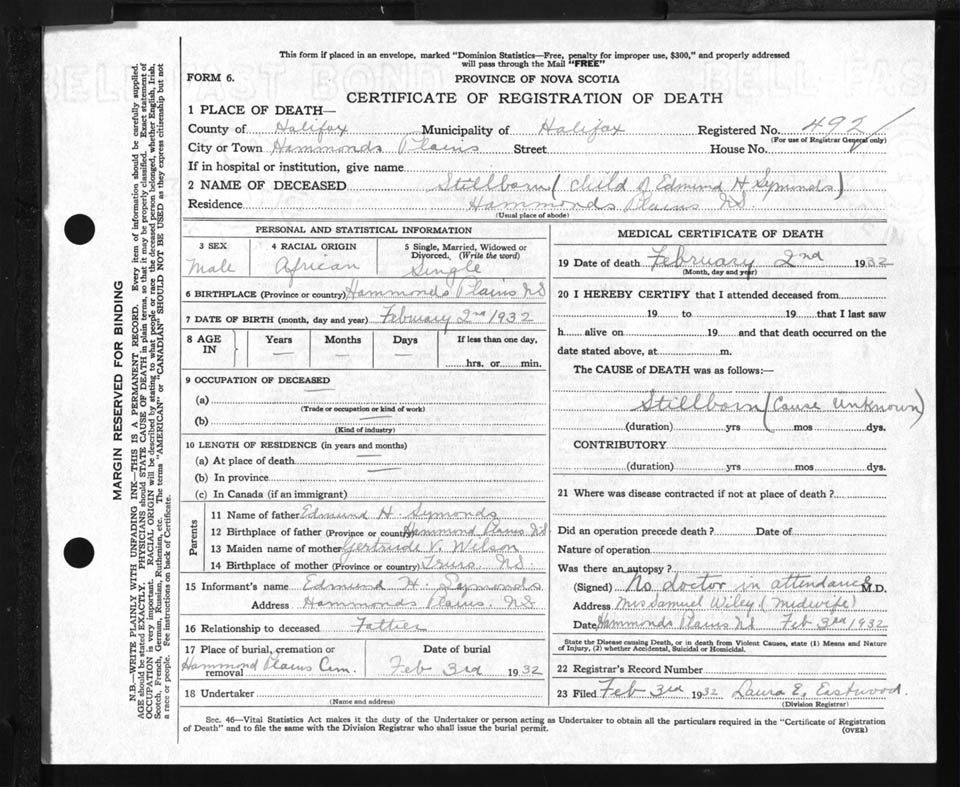 This form if placed in an envelope, marked "Dominion Statistics—Free, penalty for improper use, $300," and properly addressed
will pass through the Mail "FREE"
FORM 6.
PROVINCE OF NOVA SCOTIA
CERTIFICATE OF REGISTRATION OF DEATH
1 PLACE OF DEATH—
County of Halifax Municipality of Halifax Registered No. 492
(For use of Registrar General only)
City or Town Hammonds Plains Street House No.
If in hospital or institution, give name
2 NAME OF DECEASED Stillborn (Child of Edmund H Symonds)
Residence Hammonds Plains NS.
(Usual place of abode)
PERSONAL AND STATISTICAL INFORMATION
3 SEX 4 RACIAL ORIGIN 5 Single, Married, Widowed or
Divorced. (Write the word)
Male African Single
6 BIRTHPLACE (Province or country) Hammonds Plains NS
7 DATE OF BIRTH (month, day and year) February 2nd 1932
8 AGE IN Years Months Days If less than one day,
hrs. or min.
9 OCCUPATION OF DECEASED
(a)
(Trade or occupation or kind of work)
(b)
(Kind of industry)
10 LENGTH OF RESIDENCE (in years and months)
(a) At place of death
(b) In province
(c) In Canada (if an immigrant)
Parents
11 Name of father Edmund H. Symonds
12 Birthplace of father (Province or country) Hammond Plains NS
13 Maiden name of mother Gertrude V. Wilson
14 Birthplace of mother (Province or country) Truro NS
15 Informant's name Edmund H. Symonds
Address Hammonds Plains. NS.
16 Relationship to deceased Father
17 Place of burial, cremation or removal Date of burial
Hammond Plains Cem. Feb 3rd 1932
18 Undertaker
(Name and address)
MEDICAL CERTIFICATE OF DEATH
19 Date of death February 2nd 1932
(Month, day and year)
20 I HEREBY CERTIFY that I attended deceased from
19 to 19 that I last saw
h alive on 19 and that death occurred on the
date stated above, at m.
The CAUSE of DEATH was as follows:—
Stillborn (Cause Unknown)
(duration) yrs mos dys.
CONTRIBUTORY
(duration) yrs mos dys.
21 Where was disease contracted if not at place of death?
Did an operation precede death? Date of
Nature of operation
Was there an autopsy?
(Signed) No doctor in attendance M.D.
Address Mrs Samuel Wiley (Midwife)
Date Hammonds Plains NS Feb 3rd 1932
State the Disease causing Death, or in death from Violent Causes, state (1) Means and Nature
of Injury, (2) whether Accidental, Suicidal or Homicidal.
22 Registrar's Record Number
23 Filed Feb 3rd 1932 Laura E. Eastwood.
(Division Registrar)
Sec. 46—Vital Statistics Act makes it the duty of the Undertaker or person acting as Undertaker to obtain all the particulars required in the "Certificate of Registration
of Death" and to file the same with the Division Registrar who shall issue the burial permit.
(OVER)
MARGIN RESERVED FOR BINDING
N.B.—WRITE PLAINLY WITH UNFADING INK—THIS IS A PERMANENT RECORD. Every item of information should be carefully supplied.
AGE should be stated EXACTLY. PHYSICIANS should STATE CAUSE OF DEATH in plain terms, so that it may be properly classified. Exact statement of
OCCUPATION is very important. RACIAL ORIGIN will be described by stating to what people or race the deceased person belonged, whether English, Irish,
Scotch, French, German, Russian, Ruthenian, etc. The terms "AMERICAN" or "CANADIAN" SHOULD NOT BE USED as they express citizenship but not
a race or people. See instructions on back of Certificate.